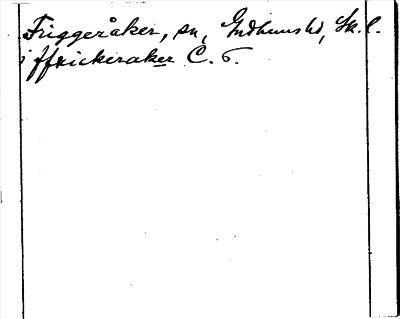 Friggeråker, sn, Gudhems hd, Sk. l.
i ffrickeraker C. 6.